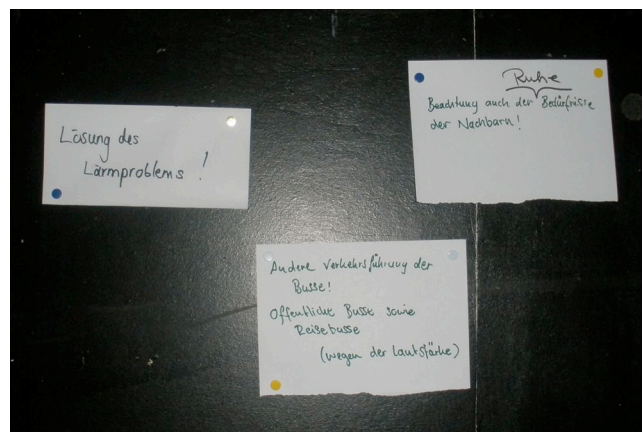 Lösung des
Lärmproblems !
Ruhe
Beachtung auch der Bedürfnisse
der Nachbarn!
Andere Verkehrsführung der
Busse!
Öffentliche Busse sowie
Reisebusse
(wegen der Lautstärke)